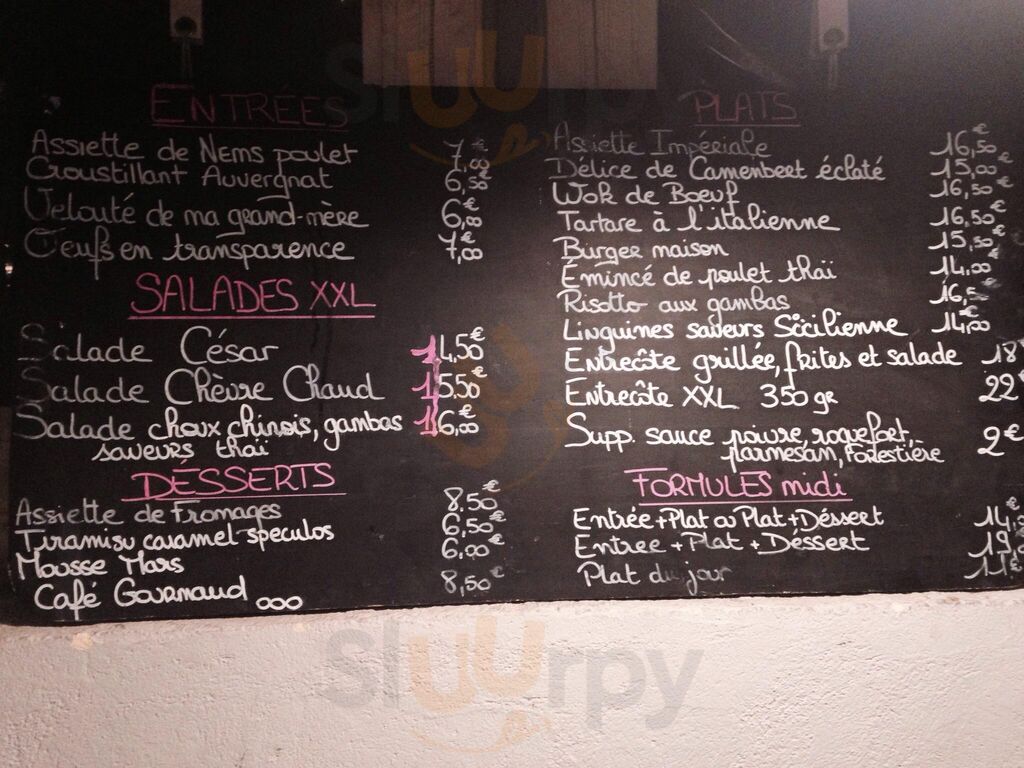 ENTRÉES
Assiette de Nems poulet 7,00€
Croustillant Auvergnat 6,50€
Velouté de ma grand-mère 6,00€
Oeufs en transparence 7,00€
SALADES XXL
Salade César 14,50€
Salade Chèvre Chaud 15,50€
Salade choux chinois, gambas 16,00€
saveurs thaï
DÉSSERTS
Assiette de Fromages 8,50€
Tiramisu caramel-speculos 6,50€
Mousse Mars 6,00€
Café Gourmaud ooo 8,50€
PLATS
Assiette Impériale 16,50€
Délice de Camenbert éclaté 15,00€
Wok de Boeuf 16,50€
Tartare à l'italienne 16,50€
Burger maison 15,50€
Émincé de poulet thaï 14,00€
Risotto aux gambas 16,5
Linguines saveurs Sicilienne 14,00€
Entrecôte grillée, frites et salade 18
Entrecôte XXL 350gr 22€
Supp. sauce poivre, roquefort, 2€
parmesan, forestière
FORMULES midi
Entrée+Plat ou Plat+Déssert 14,
Entree+Plat+Déssert 19,
Plat du jour 11€
Sluurpy
Sluurpy